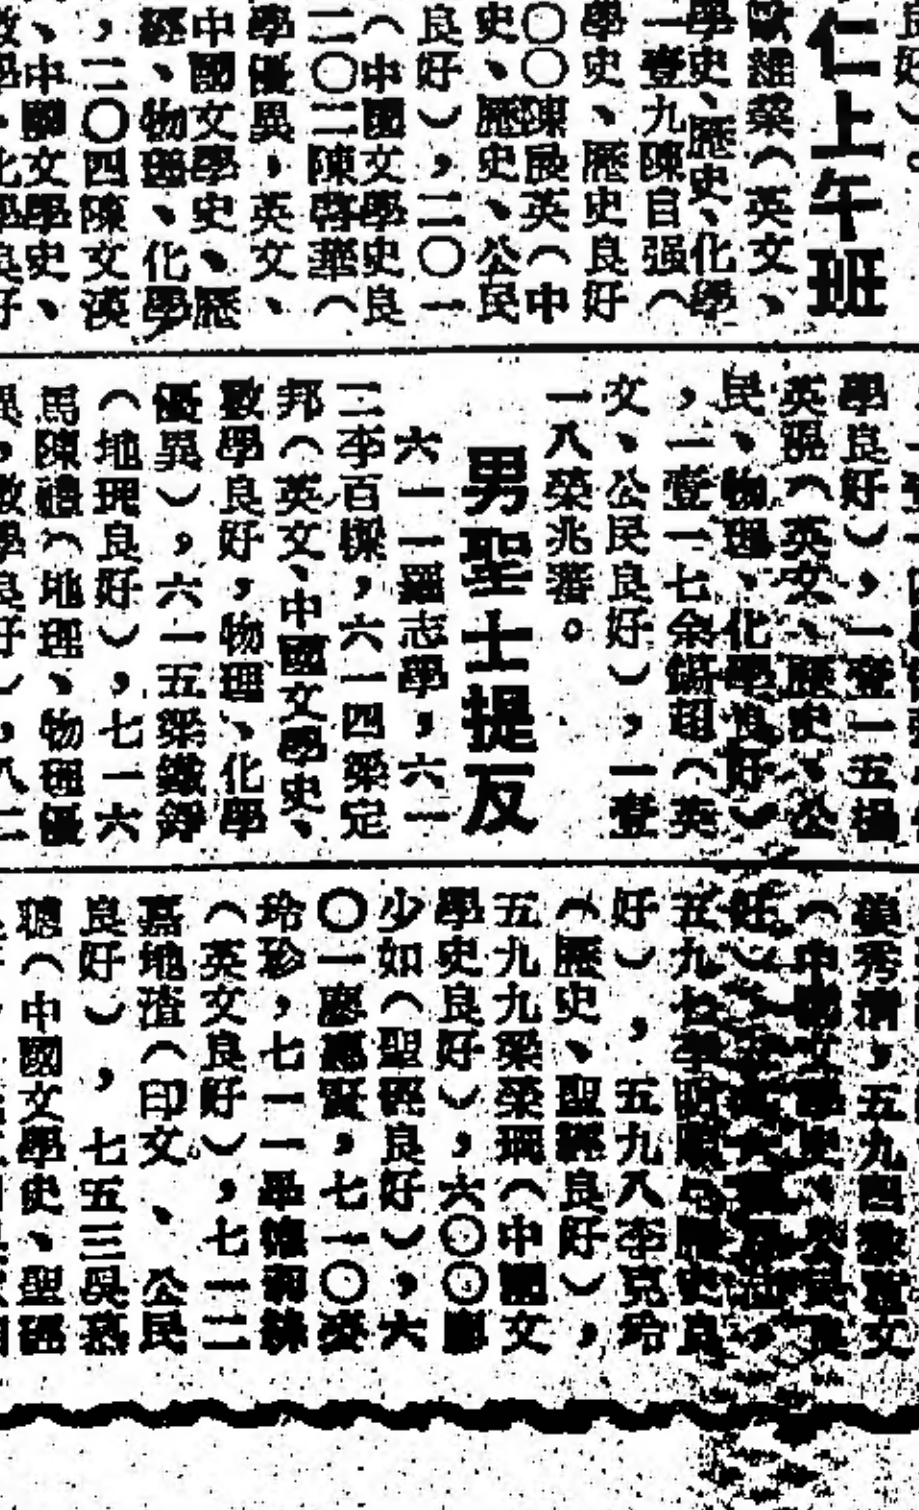 良好）。
仁上午班
歐鍾榮（英文、
學史、歷史、化學
一壹九陳自强（
學史、歷史良好
〇〇陳展英（中
史、歷史、公民
良好），二〇一
（中國文學史良
二〇二陳啓華（
學優異，英文、
中國文學史、歷
經、物理、化學
，二〇四陳文漢
、中國文學史、
數學、化學良好
學良好），一壹一五楊
英强（英文、歷史、公
民、物理、化學良好）
，一壹一七余錫超（英
文、公民良好），一壹
一八榮兆蕃。
男聖士提反
六一一羅志學，六一
二李百樑，六一四梁定
邦（英文、中國文學史、
數學良好，物理、化學
優異），六一五梁鐵錚
（地理良好），七一六
馬陳禮（地理、物理優
異，數學良好），八二
秀清，五九四黎聖文
（中國文學史、公民良
好），
五九七李　　（歷史良
好），五九八李克玲
（歷史、聖經良好），
五九九梁榮珮（中國文
學史良好），六〇〇鄺
少如（聖經良好），六
〇一廖惠賢，七一〇麥
玲珍，七一一
（英文良好），七一二
嘉地渣（印文、公民
良好），七五三吳慕
聰（中國文學史、聖經